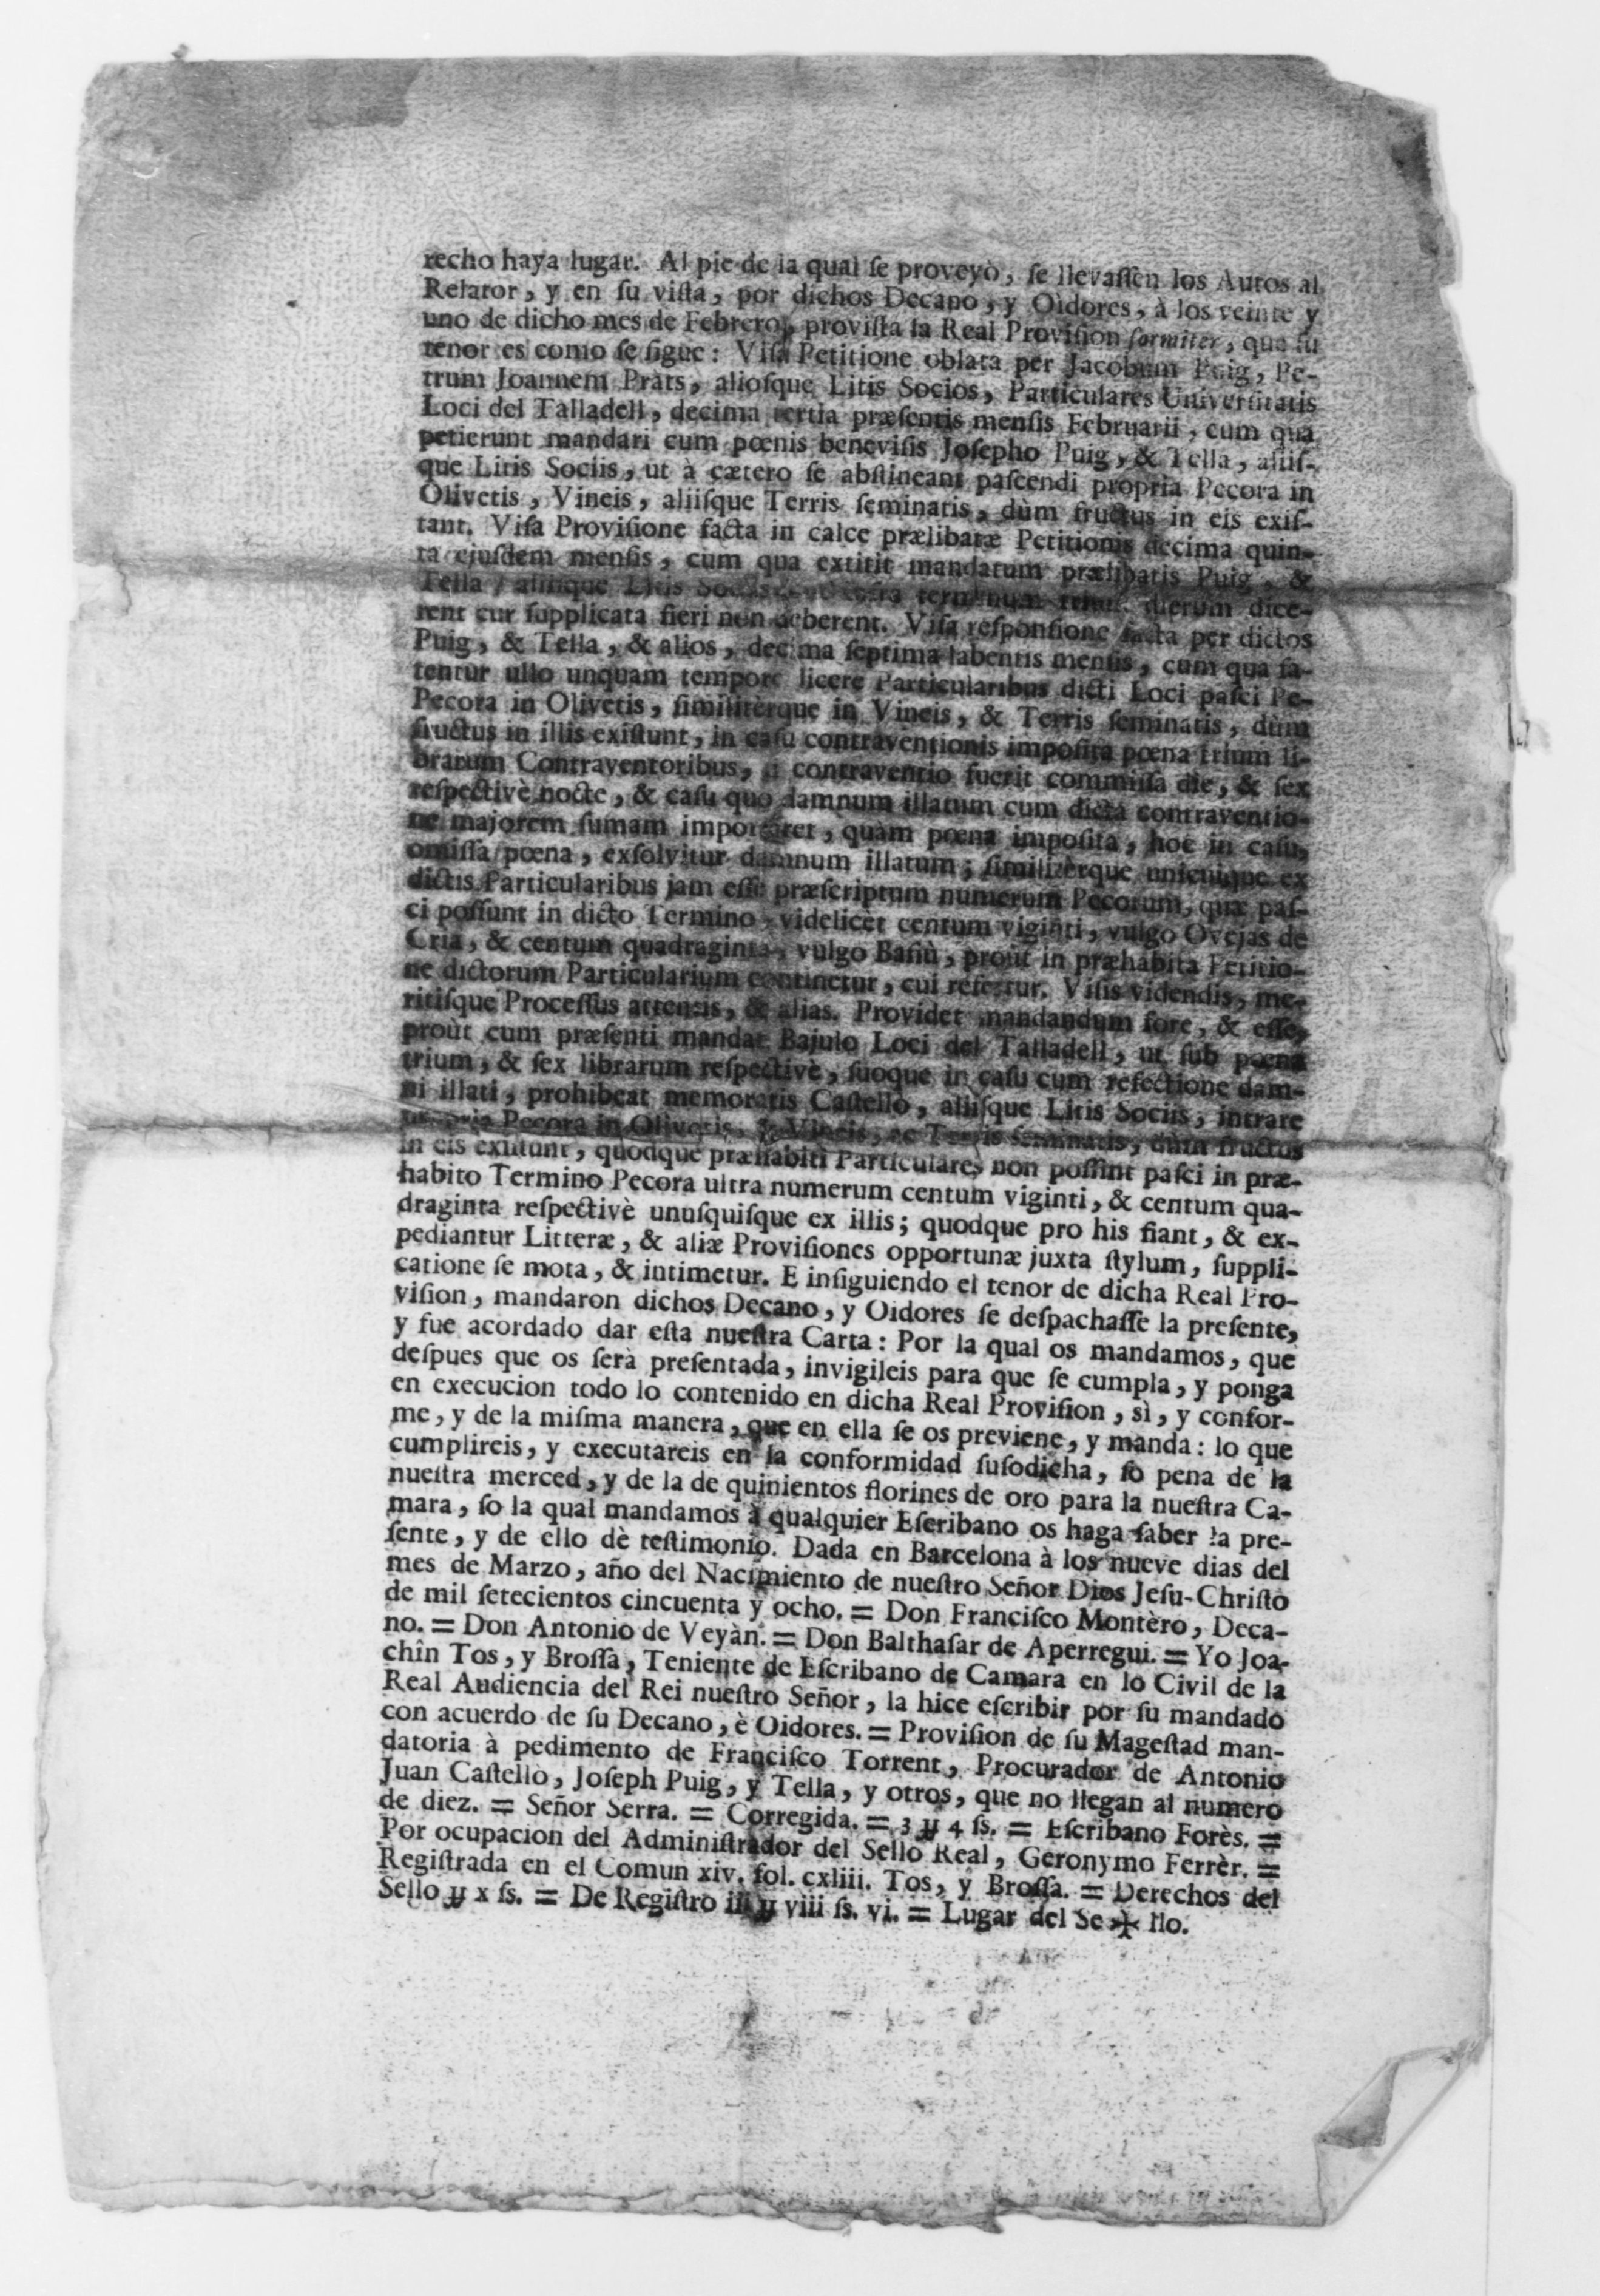 recho haya lugar. Al pie de la qual ſe proveyò, ſe llevaſſen los Autos al
Relator, y en ſu viſta, por dichos Decano, y Oìdores, à los veinte y
uno de dicho mes de Febrero, proviſta la Real Proviſion formiter, que ſu
tenor es como ſe ſigue: Viſa Petitione oblata per Jacobum Puig, Pe-
trum Joannem Prats, alioſque Litis Socios, Particulares Univerſitatis
Loci del Talladell, decima tertia præſentis menſis Februarii, cum qua
petierunt mandari cum pœnis beneviſis Joſepho Puig, & Tella, aliiſ-
que Litis Sociis, ut à cætero ſe abſtineant paſcendi propria Pecora in
Olivetis, Vineis, aliiſque Terris ſeminatis, dùm fructus in eis exiſ-
tant. Viſa Proviſione facta in calce prælibatæ Petitionis decima quin-
ta ejuſdem menſis, cum qua extitit mandatum prælibatis Puig, &
Tella, aliiſque Litis Sociis terminum dierum dice-
rent cur ſupplicata fieri non deberent. Viſa reſponſione facta per dictos
Puig, & Tella, & alios, decima ſeptima labentis menſis, cum qua fa-
tentur ullo unquam tempore licere Particularibus dicti Loci paſci Pe-
Pecora in Olivetis, ſimilitèrque in Vineis, & Terris ſeminatis, dùm
fructus in illis exiſtunt, in caſu contraventionis impoſita pœna trium li-
brarum Contraventoribus, ſi contraventio fuerit commiſſa die, & ſex
reſpectivè nocte, & caſu quo damnum illatum cum dicta contraventio-
ne majorem ſumam importaret, quàm pœna impoſita, hoc in caſu,
omiſſa pœna, exſolvitur damnum illatum; ſimilitèrque unicuique ex
dictis Particularibus jam eſſe præſcriptum numerum Pecorum, quæ paſ-
ci poſſunt in dicto Termino, videlicèt centum viginti, vulgo Ovejas de
Cria, & centum quadraginta, vulgo Baſiù, proùt in præhabita Petitio-
ne dictorum Particularium continetur, cui refertur. Viſis videndis, me-
ritiſque Proceſſus attentis, & alias. Providet mandandum fore, & eſſe,
proùt cum præſenti mandat Bajulo Loci del Talladell, ut ſub pœna
trium, & ſex librarum reſpectivè, ſuoque in caſu cum refectione dam-
ni illati, prohibeat memoratis Caſtellò, aliiſque Litis Sociis, intrare
propria Pecora in Olivetis, & Vineis, ac Terris ſeminatis, dùm fructus
in eis exiſtunt, quodque præhabiti Particulares non poſſint paſci in præ-
habito Termino Pecora ultra numerum centum viginti, & centum qua-
draginta reſpectivè unuſquiſque ex illis; quodque pro his fiant, & ex-
pediantur Litteræ, & aliæ Proviſiones opportunæ juxta ſtylum, ſuppli-
catione ſe mota, & intimetur. E inſiguiendo el tenor de dicha Real Pro-
viſion, mandaron dichos Decano, y Oidores ſe deſpachaſſe la preſente,
y fue acordado dar eſta nueſtra Carta: Por la qual os mandamos, que
deſpues que os ſerà preſentada, invigileis para que ſe cumpla, y ponga
en execucion todo lo contenido en dicha Real Proviſion, sì, y confor-
me, y de la miſma manera, que en ella ſe os previene, y manda: lo que
cumplireis, y executareis en la conformidad ſuſodicha, ſo pena de la
nueſtra merced, y de la de quinientos florines de oro para la nueſtra Ca-
mara, ſo la qual mandamos à qualquier Eſcribano os haga ſaber la pre-
ſente, y de ello dè teſtimonio. Dada en Barcelona à los nueve dias del
mes de Marzo, año del Nacimiento de nueſtro Señor Dios Jeſu-Chriſto
de mil ſetecientos cincuenta y ocho. = Don Franciſco Montèro, Deca-
no. = Don Antonio de Veyàn. = Don Balthaſar de Aperregui. = Yo Joa-
chîn Tos, y Broſſa, Teniente de Eſcribano de Camara en lo Civil de la
Real Audiencia del Rei nueſtro Señor, la hice eſcribir por ſu mandado
con acuerdo de ſu Decano, è Oidores. = Proviſion de ſu Mageſtad man-
datoria à pedimento de Franciſco Torrent, Procurador de Antonio
Juan Caſtellò, Joſeph Puig, y Tella, y otros, que no llegan al numero
de diez. = Señor Serra. = Corregida. = 3 ꝟ 4 ſs. = Eſcribano Forès. =
Por ocupacion del Adminiſtrador del Sello Real, Geronymo Ferrèr. =
Regiſtrada en el Comun xiv. fol. cxliii. Tos, y Broſſa. = Derechos del
Sello ꝟ x ſs. = De Regiſtro iii ꝟ viii ſs. vi. = Lugar del Se ✠ llo.